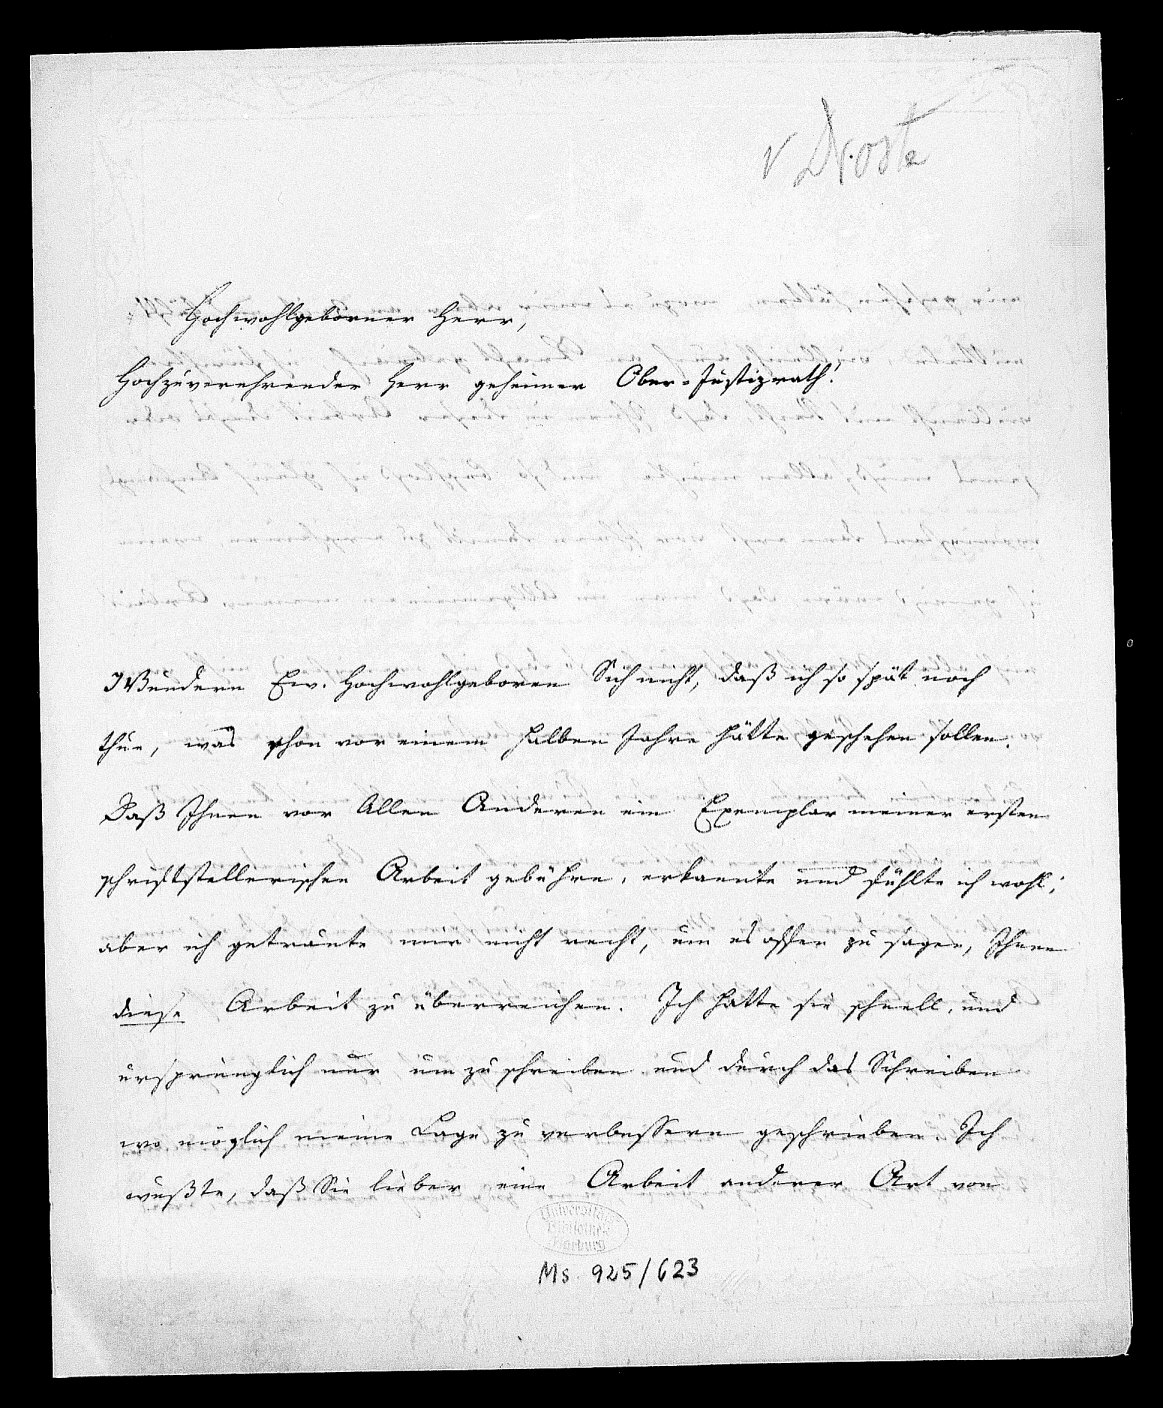 v Droste
Hochwohlgeborner Herr,
Hochzuverehrender Herr geheimer Ober-Justizrath!
Wundern Ew. Hochwohlgeboren Sich nicht, daß ich so spät noch
thue, was schon vor einem halben Jahre hätte geschehen sollen.
Daß Ihnen vor Allen Anderen ein Exemplar meiner ersten
schriftstellerischen Arbeit gebühre, erkannte und fühlte ich wohl;
aber ich getraute mir nicht recht, um es offen zu sagen, Ihnen
diese Arbeit zu überreichen. Ich hatte sie schnell, und
ursprünglich nur um zu schreiben und durch das Schreiben
wo möglich meine Lage zu verbessern geschrieben. Ich
wußte, daß Sie lieber eine Arbeit anderer Art von
Universitäts
Bibliothek
Marburg
Ms. 925/623